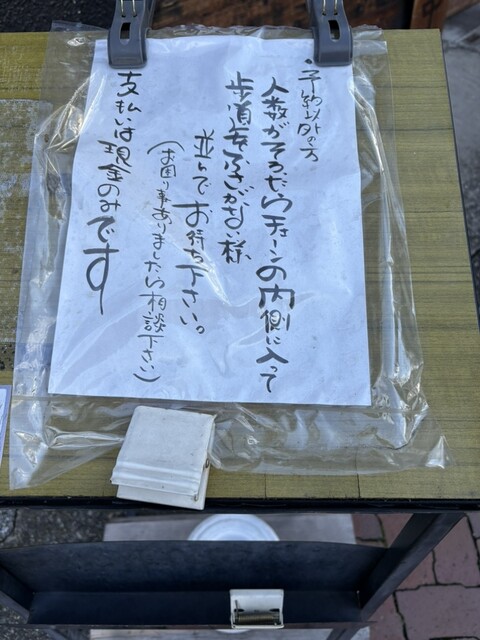 ・予約以外の方
人数がそろったらチェーンの内側に入って
歩道をふさがない様
並んでお待ち下さい。
(お困り事ありましたら相談下さい)
支払いは現金のみです